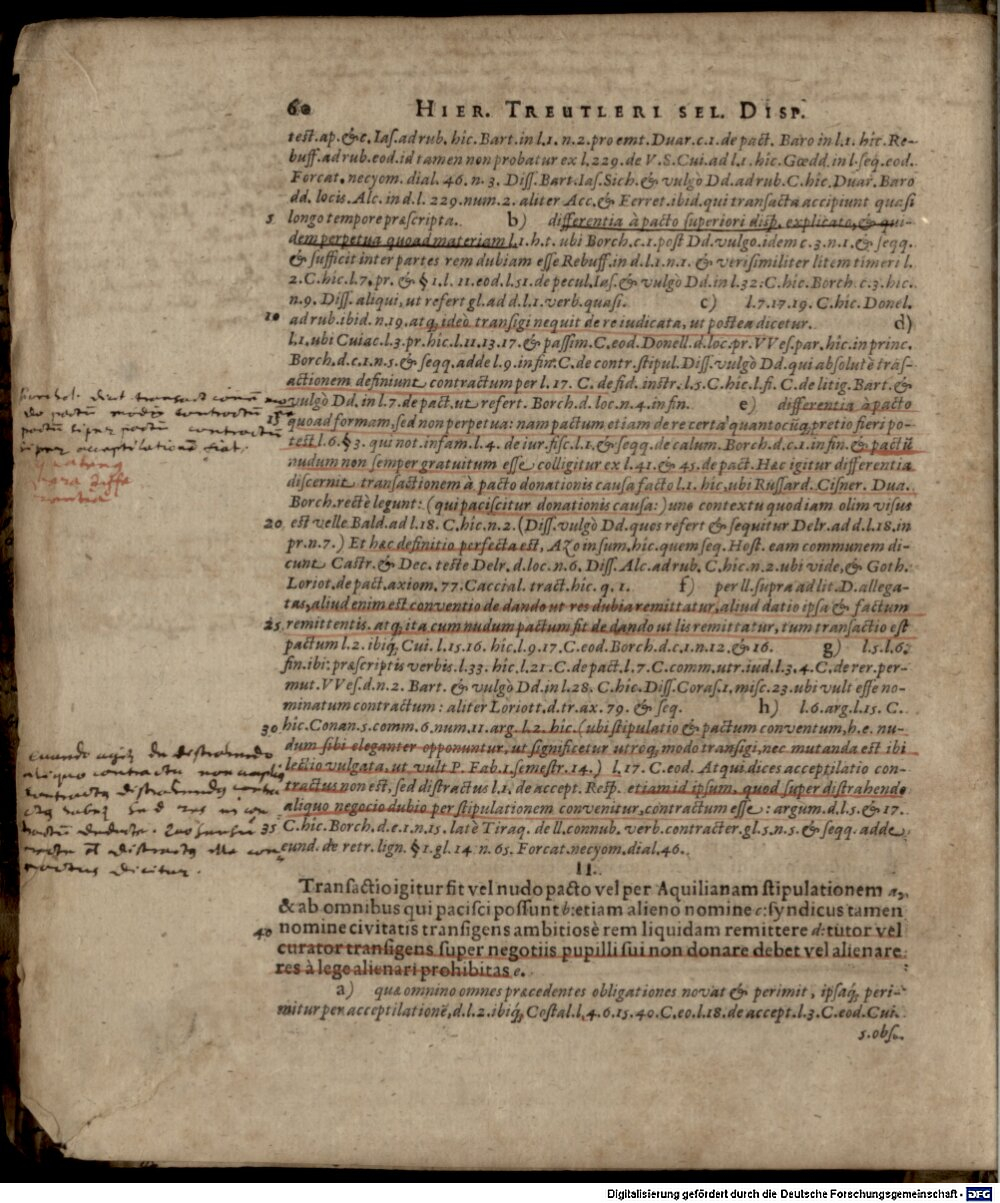 60 HIER. TREUTLERI SEL. DISP.
test. ap. &c. Ias. ad rub. hic. Bart. in l.1. n.2. pro emt. Duar. c.1. de pact. Baro in l.1. hic. Re-
buff. ad rub. eod. id tamen non probatur ex l.229. de V.S. Cui. ad l.1. hic. Gœdd. in l. seq. eod.
Forcat. necyom. dial. 46. n.3. Diss. Bart. Ias. Sich. & vulgò Dd. ad rub. C. hic. Duar. Baro
dd. locis. Alc. in d.l. 229. num. 2. aliter Acc. & Ferret. ibid. qui transacta accipiunt quasi
5 longo tempore præscripta. b) differentia à pacto superiori disp. explicato, & qui-
dem perpetua quoad materiam l.1. h.t. ubi Borch. c.1. post Dd. vulgo. idem c.3. n.1. & seqq.
& sufficit inter partes rem dubiam esse Rebuff. in d.l.1. n.1. & verisimiliter litem timeri l.
2. C. hic. l.7. pr. & §1. l. 11. eod. l.51. de pecul. Ias. & vulgò Dd. in l.32. C. hic. Borch. c.3. hic.
n.9. Diss. aliqui, ut refert gl. ad d.l.1. verb. quasi. c) l.7.17.19. C. hic. Donel.
10 ad rub. ibid. n.19. atq, ideò transigi nequit de re iudicata, ut postea dicetur. d)
l.1. ubi Cuiac. l.3. pr. hic. l.11.13.17. & passim. C. eod. Donell. d. loc. pr. VVes. par. hic. in princ.
Borch. d.c.1. n.5. & seqq. adde l.9. in fin. C. de contr. stipul. Diss. vulgò Dd. qui absolutè trās-
actionem definiunt contractum per l. 17. C. de fid. instr. l.5. C. hic. l. fi. C. de litig. Bart. &
vulgò Dd. in l.7. de pact. ut refert. Borch. d. loc. n.4. in fin. e) differentia à pacto
15 quoad formam, sed non perpetua: nam pactum etiam de re certa quantocūq, pretio fieri po-
test l.6. §3. qui not. infam. l.4. de iur. fisc. l.1. & seqq. de calum. Borch. d.c.1. in fin. & pactū
nudum non semper gratuitum esse colligitur ex l.41. & 45. de pact. Hæc igitur differentia
discernit transactionem à pacto donationis causa facto l.1. hic, ubi Russard. Cisner. Dua.
Borch. rectè legunt: (qui paciscitur donationis causa:) uno contextu quod iam olim visus
20 est velle Bald. ad l.18. C. hic. n.2. (Diss. vulgò Dd. quos refert & sequitur Delr. ad d.l.18. in
pr. n.7.) Et hæc definitio perfecta est, Azo in sum. hic. quem seq. Host. eam communem di-
cunt Castr. & Dec. teste Delr. d. loc. n.6. Diss. Alc. ad rub. C. hic. n.2. ubi vide, & Goth.
Loriot. de pact. axiom. 77. Caccial. tract. hic. q. 1. f) per ll. supra ad lit. D. allega-
tas, aliud enim est conventio de dando ut res dubia remittatur, aliud datio ipsa & factum
25 remittentis. atq, ita cum nudum pactum fit de dando ut lis remittatur, tum transactio est
pactum l.2. ibiq, Cui. l.15.16. hic. l.9.17. C. eod. Borch. d.c.1. n.12. & 16. g) l.5. l.6.
fin. ibi: præscriptis verbis. l.33. hic. l.21. C. de pact. l.7. C. comm. utr. iud. l.3.4. C. de rer. per-
mut. VVes. d. n.2. Bart. & vulgò Dd. in l.28. C. hic. Diss. Coras. 1. misc. 23. ubi vult esse no-
minatum contractum: aliter Loriott. d. tr. ax. 79. & seq. h) l.6. arg. l.15. C.
30 hic. Conan. 5. comm. 6. num. 11. arg. l.2. hic. (ubi stipulatio & pactum conventum, h.e. nu-
dum sibi eleganter opponuntur, ut significetur utroq, modo transigi, nec mutanda est ibi
lectio vulgata, ut vult P. Fab. 1. semestr. 14.) l. 17. C. eod. Atqui dices acceptilatio con-
tractus non est, sed distractus l.1. de accept. Resp. etiam id ipsum, quod super distrahendo
aliquo negocio dubio per stipulationem convenitur, contractum esse: argum. d.l.5. & 17.
35 C. hic. Borch. d.c.1. n.15. latè Tiraq. de ll. connub. verb. contracter. gl.5. n.5. & seqq. adde
eund. de retr. lign. §1. gl. 14. n. 65. Forcat. necyom. dial. 46.
II.
Transactio igitur fit vel nudo pacto vel per Aquilianam stipulationem a,
& ab omnibus qui pacisci possunt b: etiam alieno nomine c: syndicus tamen
40 nomine civitatis transigens ambitiosè rem liquidam remittere d: tutor vel
curator transigens super negotiis pupilli sui non donare debet vel alienare
res à lege alienari prohibitas e.
a) quæ omnino omnes præcedentes obligationes novat & perimit, ipsaq, peri-
mitur per acceptilationē, d.l.2. ibiq, Costal. l.4.6.15.40. C. eo. l.18. de accept. l.3. C. eod. Cui.
5. obs.
Digitalisierung gefördert durch die Deutsche Forschungsgemeinschaft - DFG